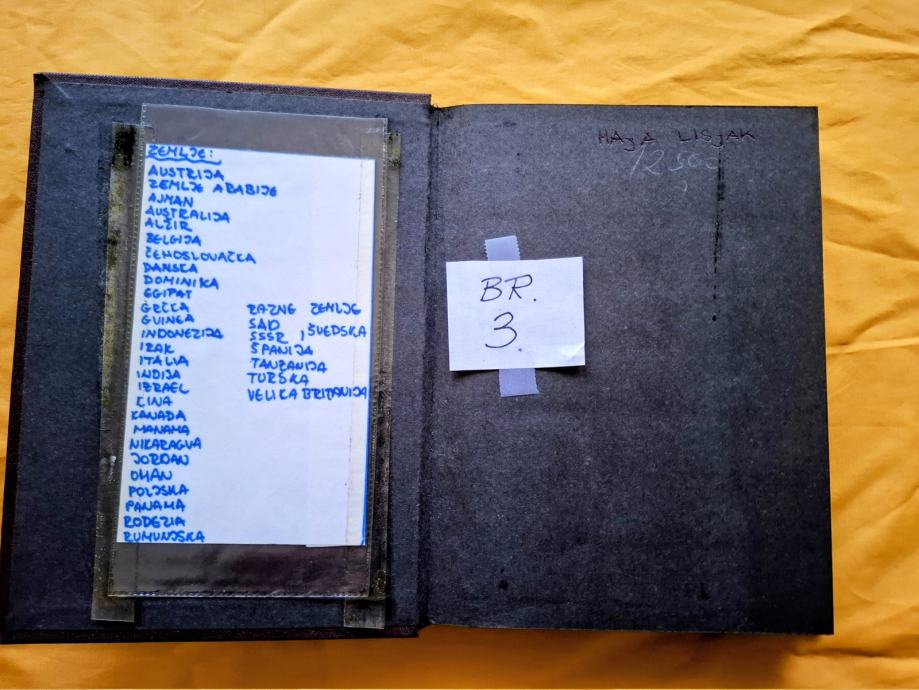 ZEMLJE:
AUSTRIJA
ZEMLJE ARABIJE
AJMAN
AUSTRALIJA
ALŽIR
BELGIJA
ČEHOSLOVAČKA
DANSKA
DOMINIKA
EGIPAT
GRČKA
GUINEA
INDONEZIJA
IRAK
ITALIA
INDIJA
IZRAEL
KINA
KANADA
MANAMA
NIKARAGVA
JORDAN
OMAN
POLJSKA
PANAMA
RODEZIA
RUMUNJSKA
RAZNE ZEMLJE
SAD
SSSR , ŠVEDSKA
ŠPANIJA
TANZANIJA
TURSKA
VELIKA BRITANIJA
MAJA LISJAK
BR.
3.